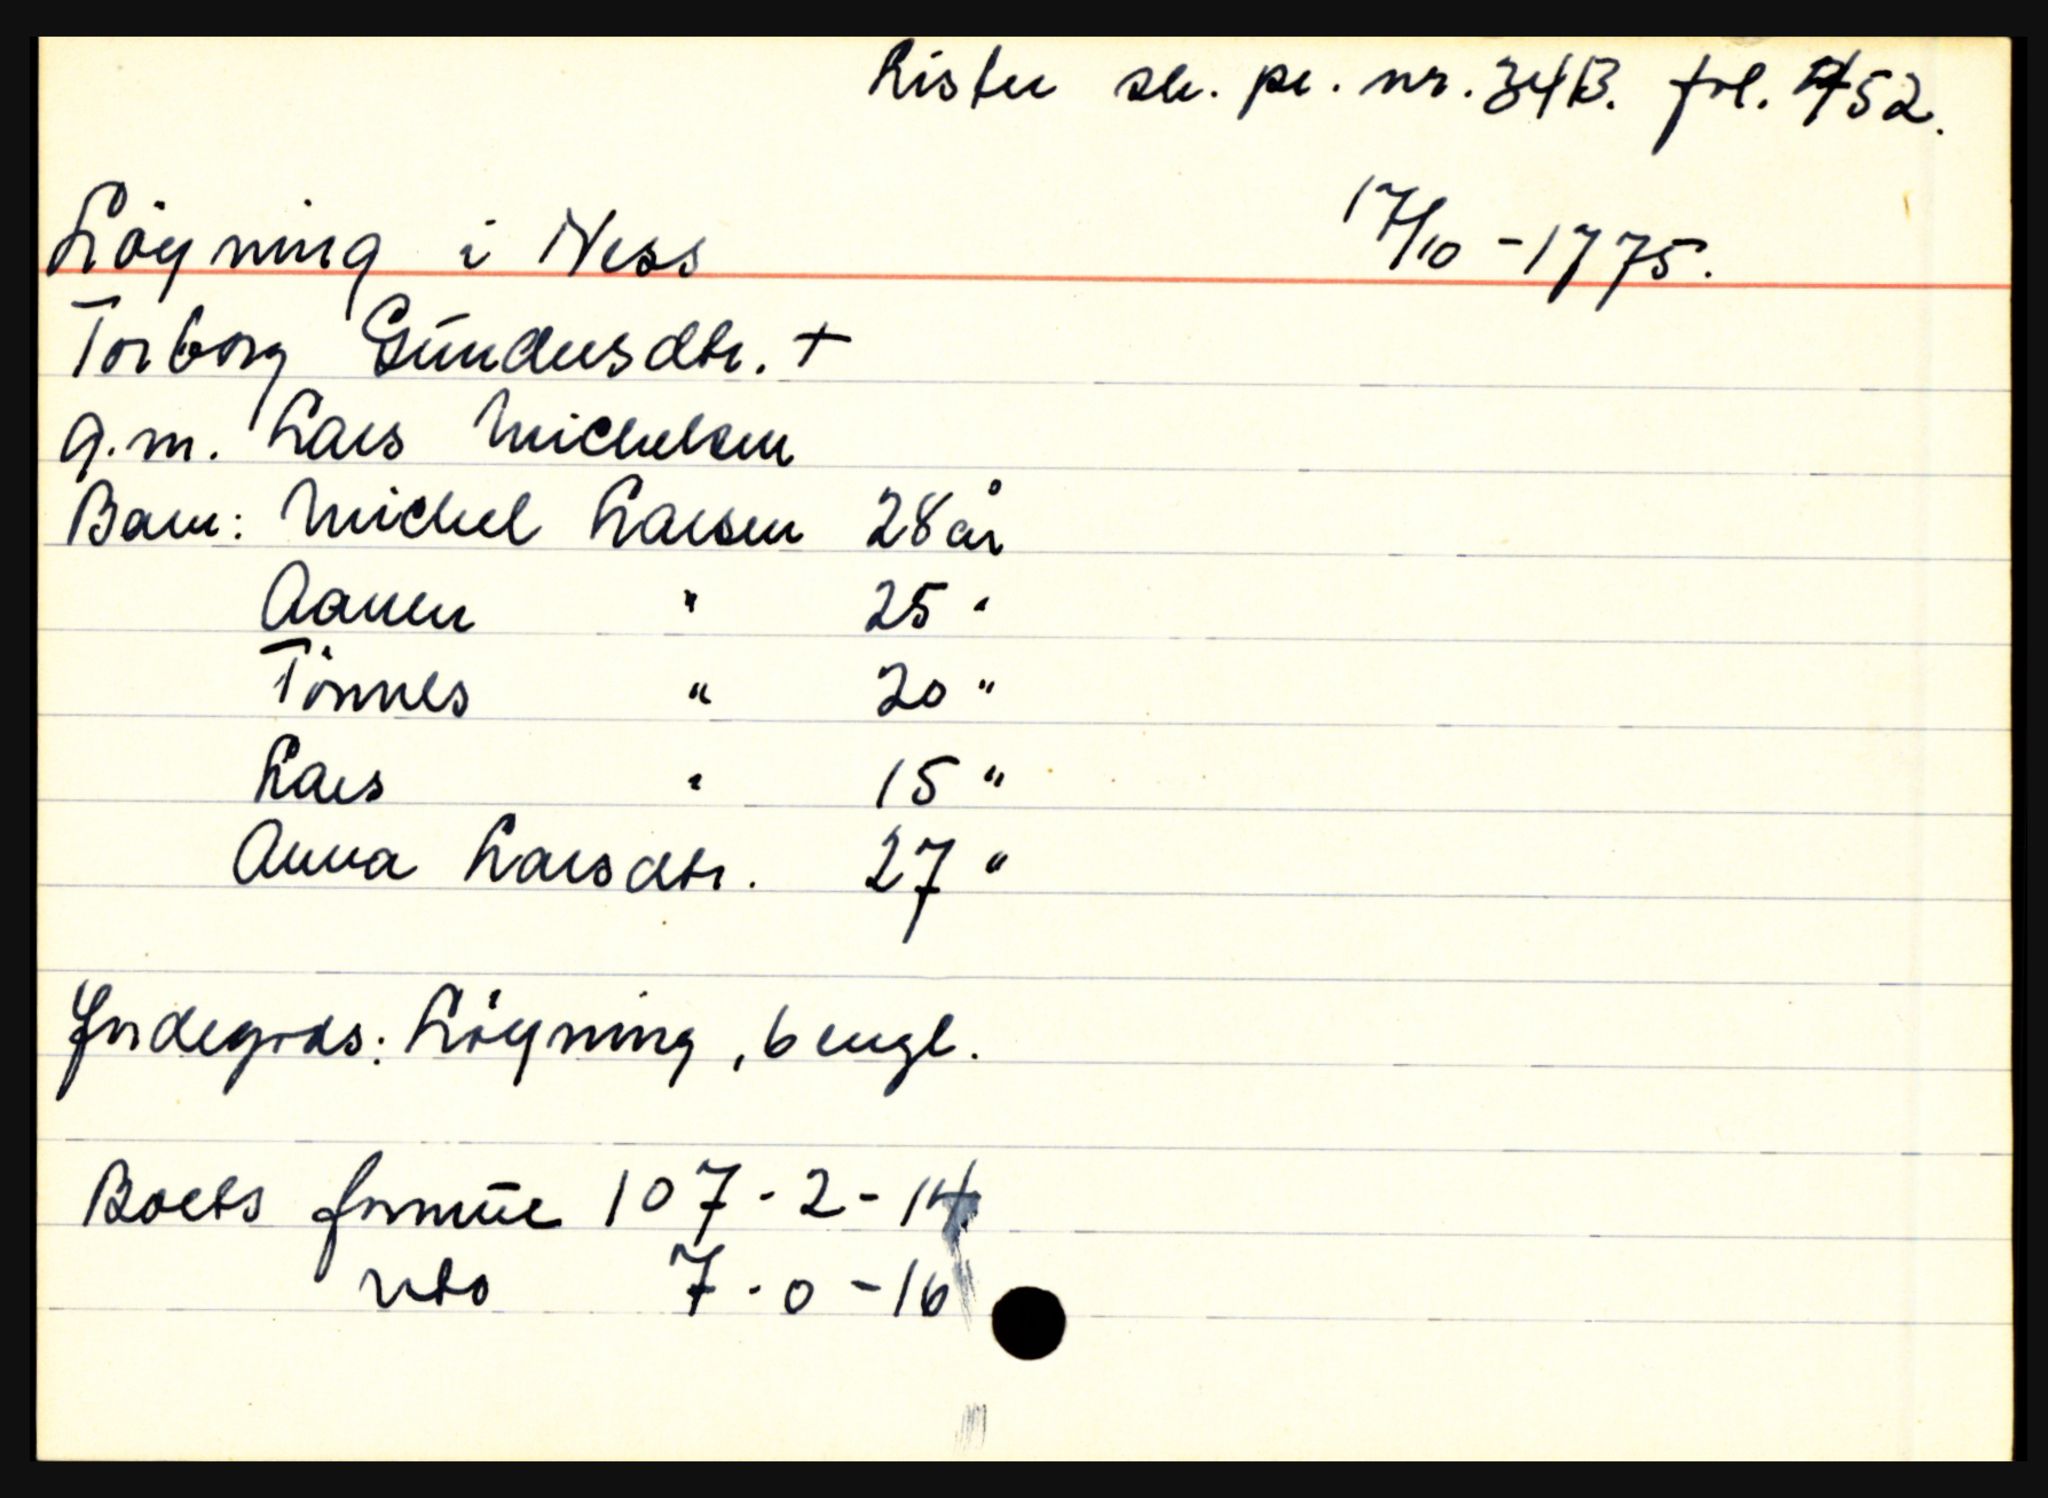 Lister sk. pr. nr. 34B. fol. 452.
Löyning i Ness 17/10 - 1775.
Torborg Gundersdtr. +
g.m. Lars Michelsen
Barn: Michel Larsen 28 år
Aanen " 25 "
Tönnes " 20 "
Lars " 15 "
Anna Larsdtr. 27 "
Jordegods: Löyning, 6 engl.
Boets formue 107 - 2 - 14
nto 7 - 0 - 16